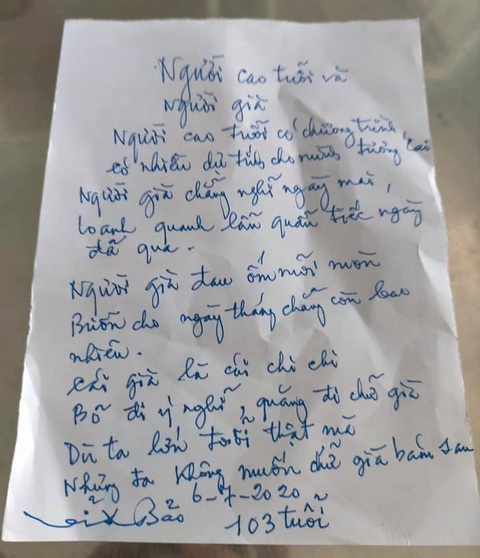 Người cao tuổi và
Người già
Người cao tuổi có chương trình,
có nhiều dự tính cho mình tương lai
Người già chẳng nghĩ ngày mai,
loanh quanh lẩn quẩn tiếc ngày
đã qua.
Người già đau ốm mỏi mòn
Buồn cho ngày tháng chẳng còn bao
nhiêu.
Cái già là cái chi chi
Bỏ đi ý nghĩ, quăng đi chữ già
Dù ta lớn tuổi thật mà
Nhưng ta không muốn chữ già bám sau
6-7-2020
Bảo 103 tuổi